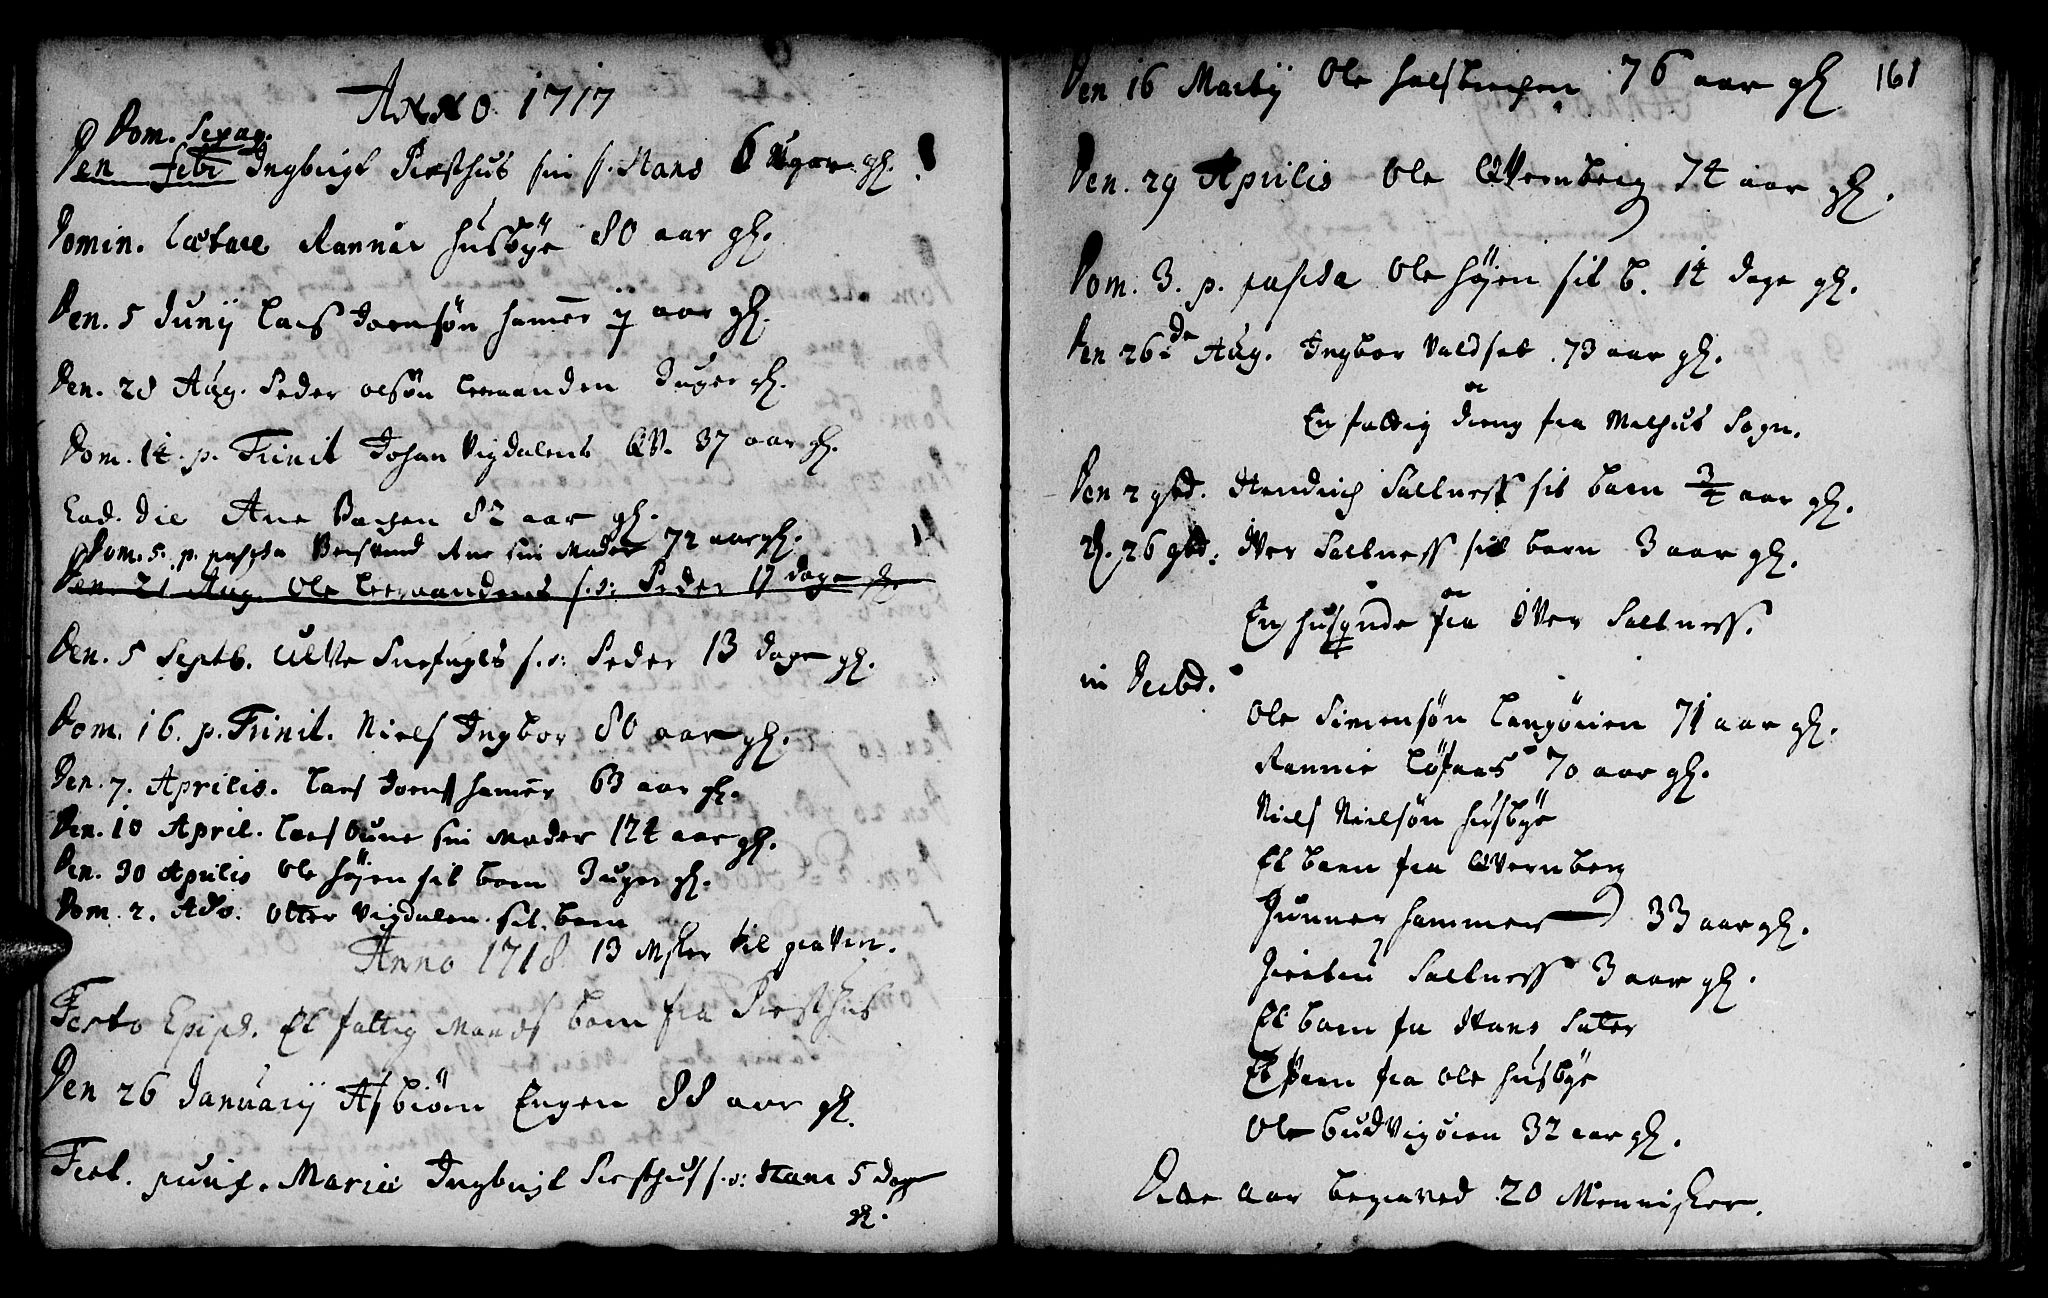 Anno 1717
Dom. Sexag.
Den Febr Ingbrigt Præsthus sin s. Hans 6 Uger gl.
Domin. Lætare Rannie Husbye 80 aar gl.
Den. 5 Junij Lars Joensøn Hamer aar gl.
Den. 28 Aug. Peder olsøn Leeraanden 3 uger gl.
Dom. 14. p. Trinit Johan Vigdalens QV. 37 aar gl.
Eod. Die Ane Bachen 82 aar gl.
Dom. 5. p. pascha Ane sin Moder 72 aar gl.
Den. 21 Aug. Ole Leeraandens s. n: Peder 17 dage gl
Den. 5 Septb. Ulve Snefugls s. n: Peder 13 dage gl.
Dom. 16. p. Trinit. Niels Ingbor 80 aar gl.
Den. 7. Aprilis. Lars Joens Hamer 63 aar gl.
Den. 10 April. Lars sin Moder 124 aar gl.
Den. 30 Aprilis Ole Høyen sit barn 3 uger gl.
Dom. 2. Adv. Olter Vigdalen sit barn
Anno 1718 13 Msker til graven.
Festo Epiph. Et fattig Mands barn fra Præsthus
Den 26 Januarij Asbiörn Engen 88 aar gl.
Fest. purif. Mariæ Ingbrigt Præsthus s. n: Hans 5 dage
gl.
161
Den 16 Martij Ole Halsbechen 76 aar gl
Den. 29 Aprilis Ole QVernberg 74 aar gl.
Dom. 3. p. pascha Ole Høyen sit b. 14 dage gl.
Den 26de Aug. Ingbor Valdset 73 aar gl.
En fattig dreng fra Melhus Sogn.
Den 2 9bd. Hendrich Saltness sit barn 3/4 aar gl.
D. 26 9bd. Iver Saltness sit barn 3 aar gl.
En husqvinde fra Iver Saltness.
in Decbd.
Ole Simensøn Langøeien 71 aar gl.
Rannie Løfaas 70 aar gl.
Niels Nielsøn Husbye
Et barn fra QVernberg
Gunner Hammer 33 aar gl.
Saltness 3 aar gl.
Et barn fra Hans Sater
Et barn fra Ole Husbye
Ole Budvigøien 32 aar gl.
Dette aar begraved 20 Mennisker.